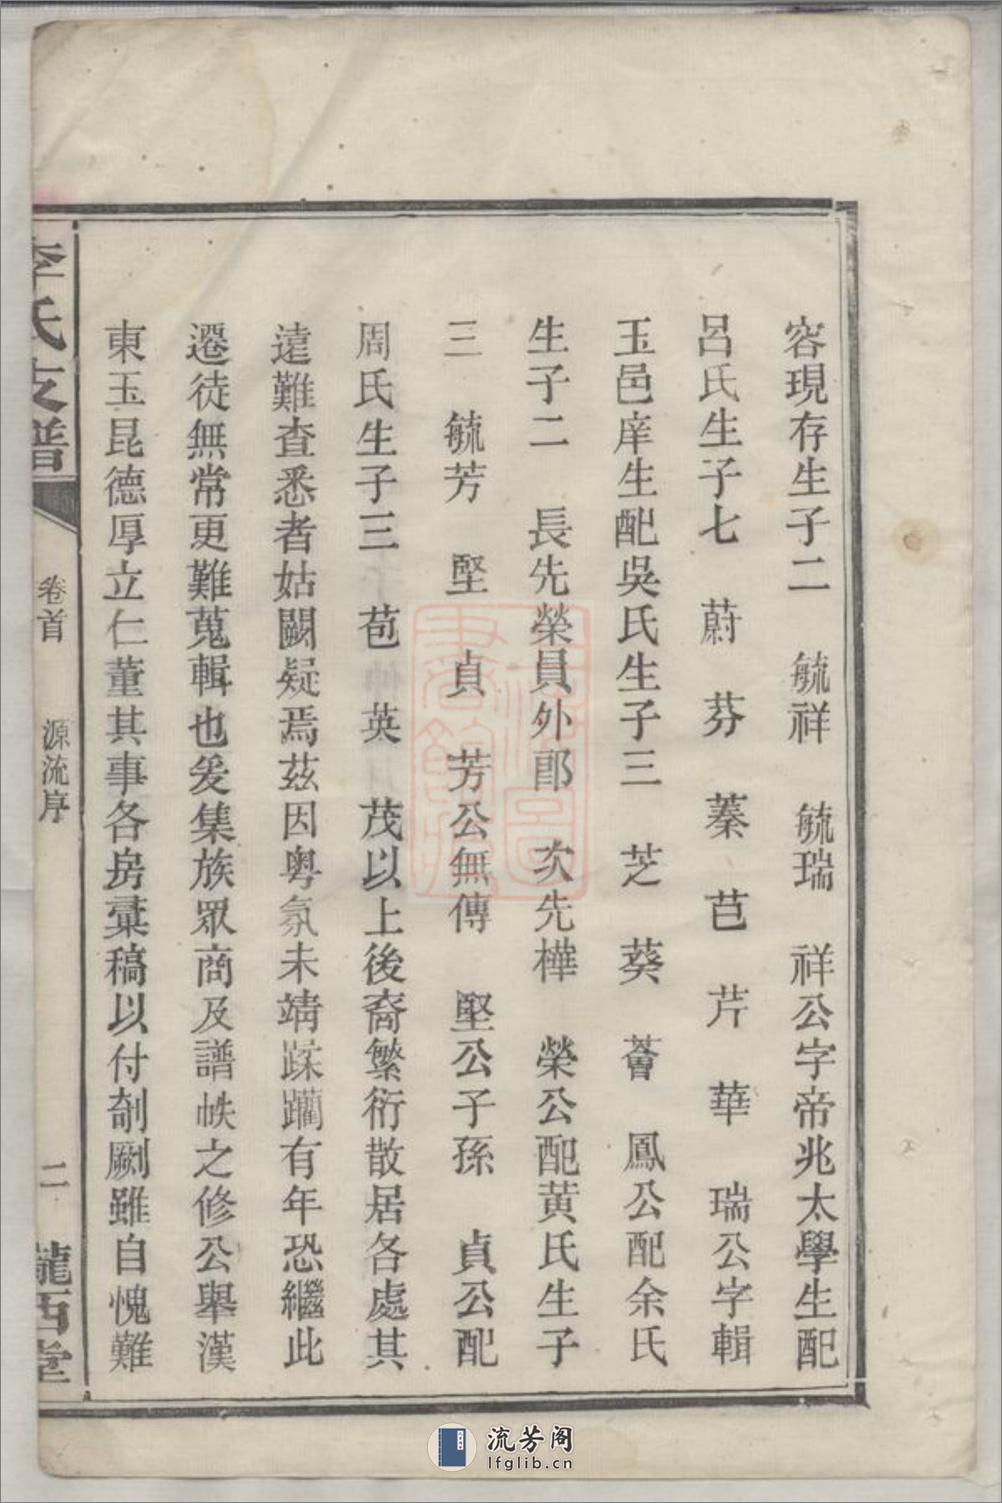 容現存生子二　毓祥　毓瑞　祥公字帝兆太學生配
呂氏生子七　蔚　芬　蓁　芑　芹　華　瑞公字輯
玉邑庠生配吳氏生子三　芝　葵　薈　鳳公配余氏
生子二　長先榮員外郎　次先樺　榮公配黃氏生子
三　毓芳　堅　貞　芳公無傳　堅公子孫　貞公配
周氏生子三　苞　英　茂以上後裔繁衍散居各處其
遠難查悉者姑闕疑焉茲因粵氛未靖蹂躪有年恐繼此
遷徒無常更難蒐輯也爰集族眾商及譜帙之修公舉漢
東玉昆德厚立仁董其事各房彙稿以付剞劂雖自愧難
李氏支譜
卷首
源流序
二
隴西堂
流芳阁
lfglib.cn